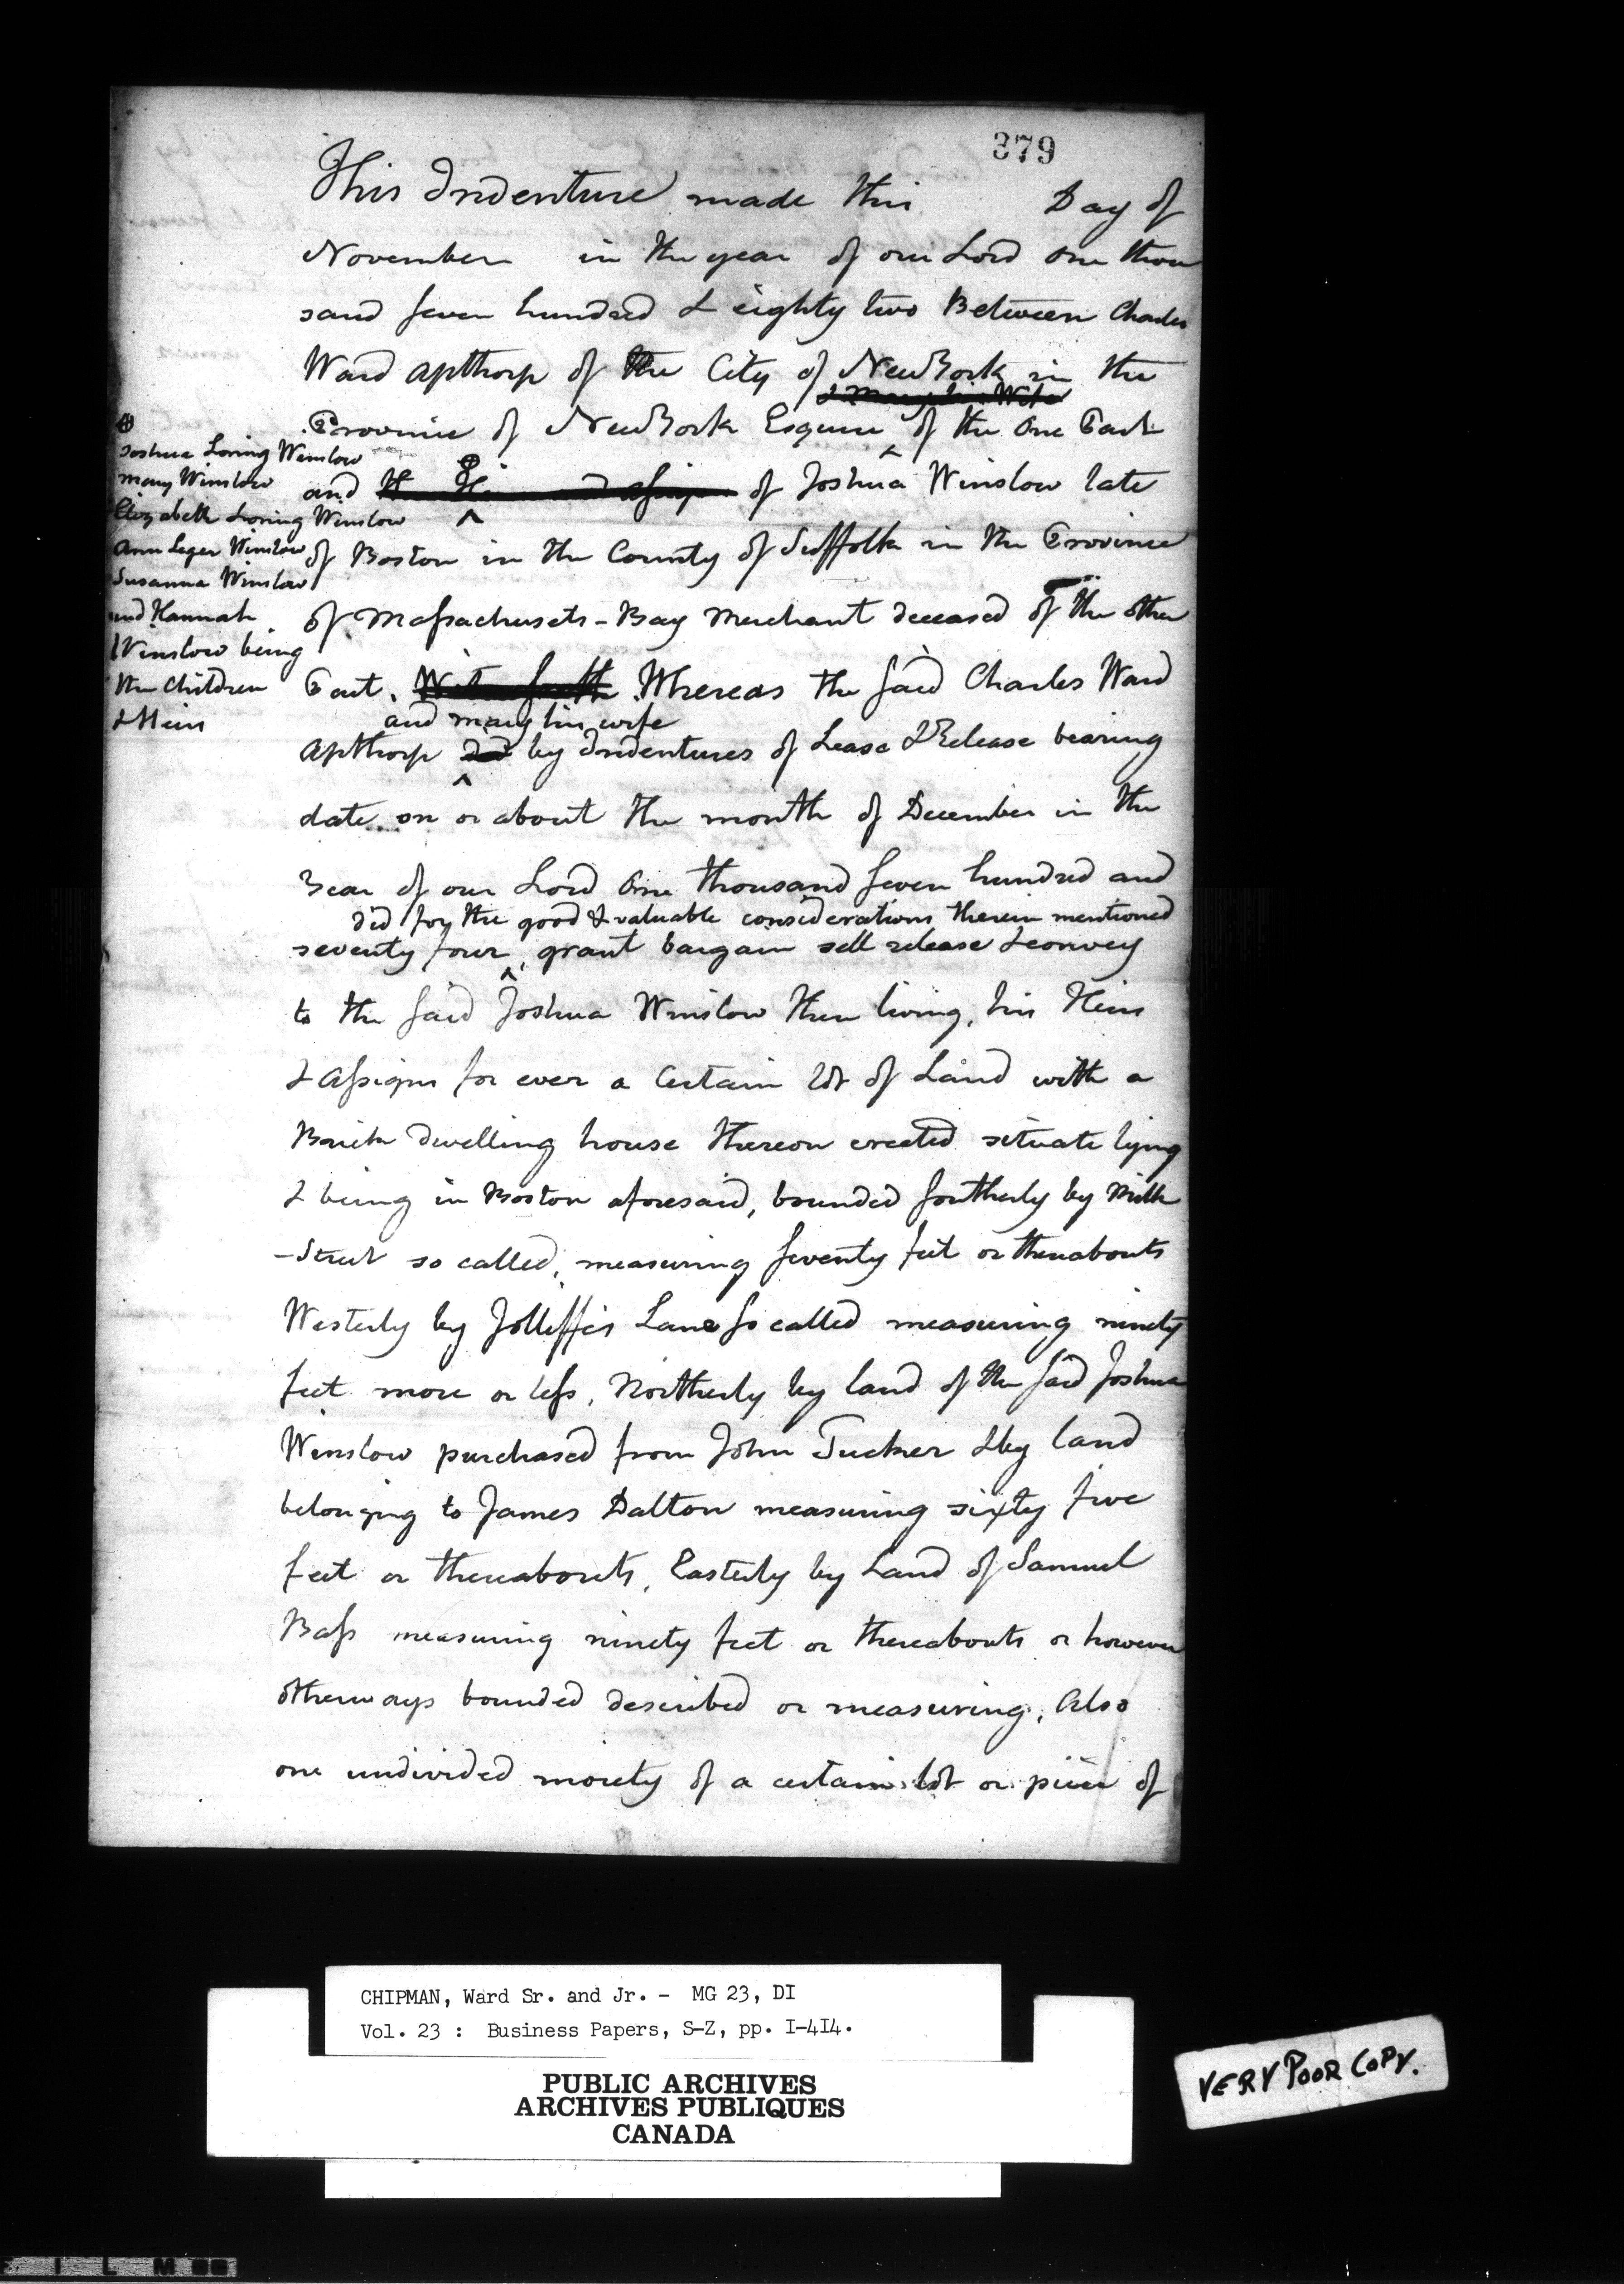 379
This Indenture made this Day of
November in the year of our Lord One thou
sand seven hundred & eighty two Between Charles
Ward Apthorp of the City of New York in the
& Mary his Wife
Province of New York Esquire of the One Part
and the Heirs and assigns of Joshua Winslow late
of Boston in the County of Suffolk in the Province
of Massachusets-Bay Merchant deceased of the other
Part. Witnesseth Whereas the said Charles Ward
and mary his wife
Apthorp did by Indentures of Lease & Release bearing
date on or about the month of December in the
Year of our Lord One thousand seven hundred and
did for the good & valuable considerations therein mentioned
seventy four, grant bargain sell release & convey
to the said Joshua Winslow then living, his Heirs
& Assigns for ever a Certain lot of Land with a
Brick dwelling house thereon erected situate lying
& being in Boston aforesaid, bounded southerly by Milk
-Street so called, measuring seventy feet or thereabouts
Westerly by Jolliffes Lane so called measuring ninety
feet more or less, Northerly by land of the said Joshua
Winslow purchased from John Tucker & by land
belonging to James Dalton measuring sixty five
feet or thereabouts, Easterly by Land of Samuel
Bass measuring ninety feet or thereabouts or however
otherways bounded described or measuring, Also
one undivided moiety of a certain lot or piece of
⊕
Joshua Loring Winslow
Mary Winslow
Elizabeth Loring Winslow
Ann Leger Winslow
Susanna Winslow
and Hannah
Winslow being
the Children
& Heirs
CHIPMAN, Ward Sr. and Jr. - MG 23, DI
Vol. 23 : Business Papers, S-Z, pp. I-4I4.
PUBLIC ARCHIVES
ARCHIVES PUBLIQUES
CANADA
VERY POOR COPY.